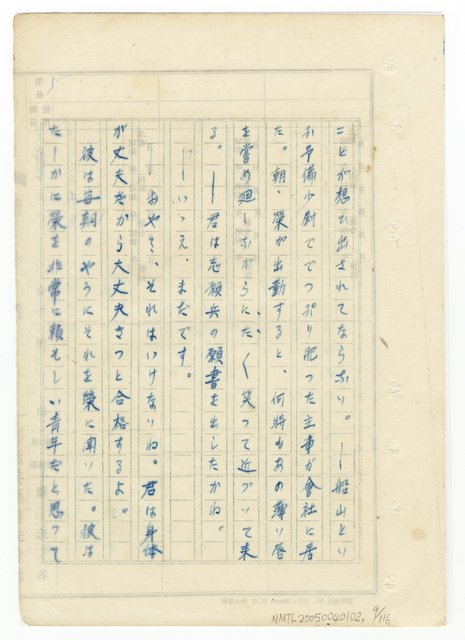 ことが想ひ出されてならない。――船山とい
ふ予備少尉ででっぷり肥った主事が會社に居
た。朝、榮が出勤すると、何時もあの薄い唇
を嘗め廻しながらにた〱笑って近づいて来
る。――君は志願兵の願書を出したかね。
――いゝえ、まだです。
――おや〱、それはいけないね。君は身体
が丈夫だから大丈夫きっと合格するよ。
彼は毎朝のやうにそれを榮に聞いた。彼は
たしかに榮を非常に頼もしい青年だと思って
NMTL20050040102, 9/116